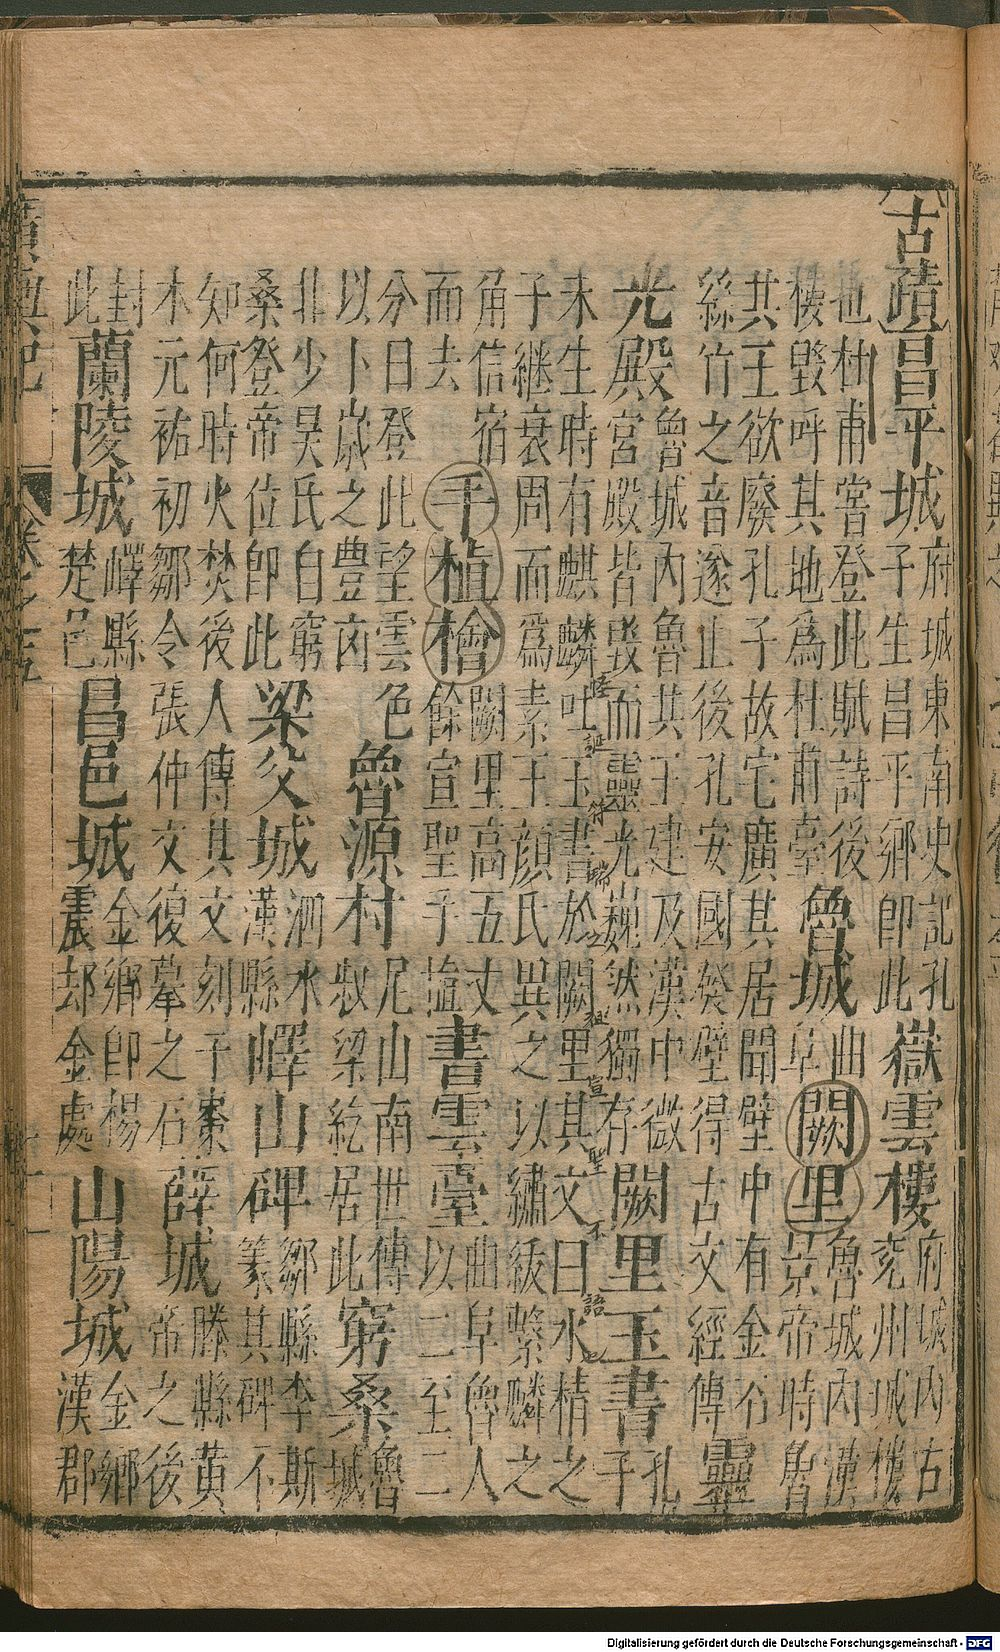 古蹟昌平城府城東南史記孔子生昌平鄉即此嶽雲樓府城内古兖州城樓
也杜甫嘗登此賦詩後樓毀呼其地爲杜甫臺魯城曲阜闕里魯城内漢景帝時魯
共王欲廢孔子故宅廣其居聞壁中有金石絲竹之音遂止後孔安國發壁得古文經傳靈
光殿魯城内魯共王建及漢中微宮殿皆毀而靈光巍然獨存闕里玉書孔子
怪誕符瑞之祖宣聖不語也
未生時有麒麟吐玉書於闕里其文曰水精之子継衰周而爲素王顏氏異之以繡紱繫麟之
角信宿而去手植檜闕里高五丈餘宣聖手植書雲臺曲阜魯人以二至二
分日登此望雲色以卜歲之豊凶魯源村尼山南世傳叔梁紇居此窮桑魯城
北少昊氏自窮桑登帝位即此梁父城泗水漢縣嶧山碑鄒縣李斯篆其碑不
知何時火焚後人傳其文刻于棗木元祐初鄒令張仲文復摹之石薛城滕縣黄帝之後
封此蘭陵城嶧縣楚邑昌邑城金鄉即楊震却金處山陽城金鄉漢郡
卷之五
十一
Digitalisierung gefördert durch die Deutsche Forschungsgemeinschaft - DFG